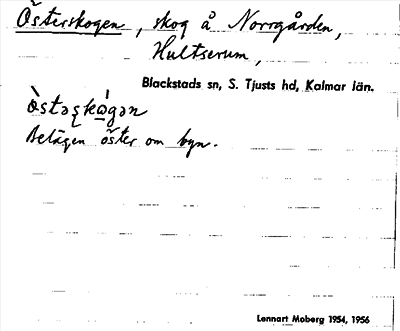 Österskogen, skog å Norrgården,
Hultserum,
Blackstads sn, S. Tjusts hd, Kalmar län.
Belägen öster om byn.
Lennart Moberg 1954, 1956